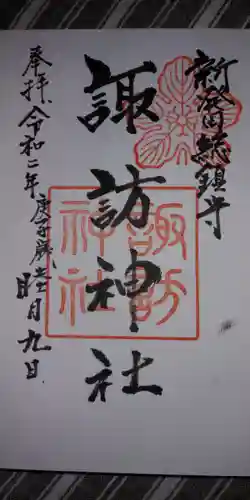 新発田総鎮守
諏訪神社
諏訪神社
奉拝 令和二年庚子歳睦月九日